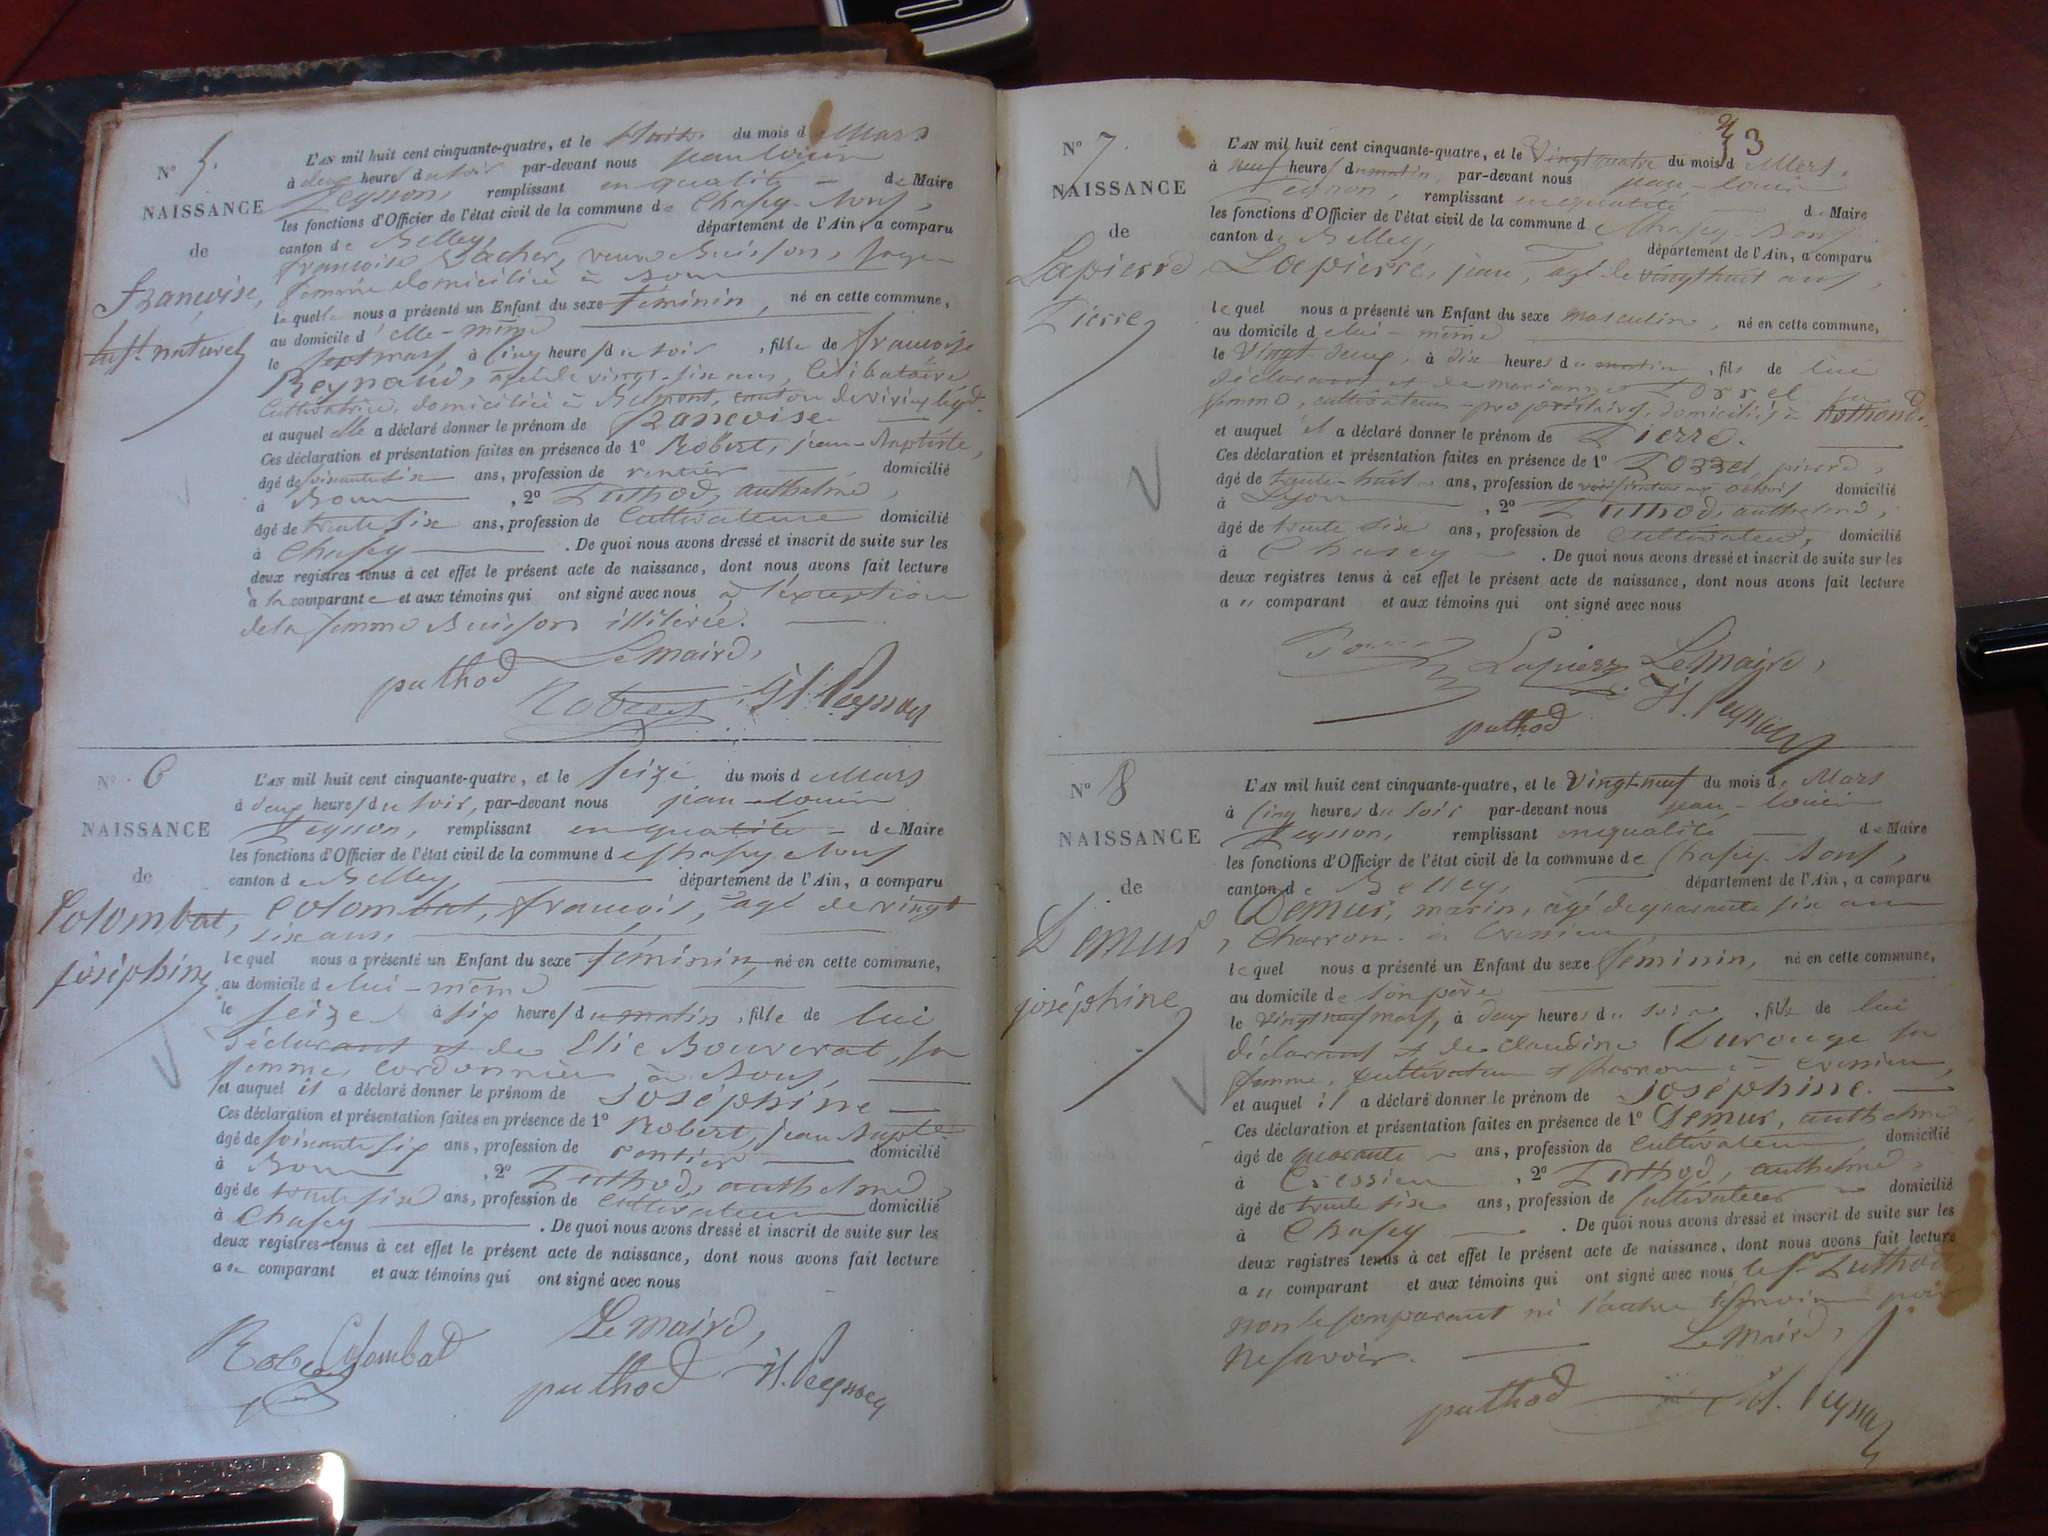 N° 5.
NAISSANCE
de
françoise,
enft naturel
L'AN mil huit cent cinquante-quatre, et le huit du mois d Mars
à deux heures du soir par-devant nous jean louis
Peysson, remplissant en qualité de Maire
les fonctions d'Officier de l'état civil de la commune de Chasey-Bons,
canton de Belley, département de l'Ain, a comparu
françoise veuve Buisson, sage
femme domiciliée à Bons
laquelle nous a présenté un Enfant du sexe féminin, né en cette commune,
au domicile d'elle-même
le sept mars, à cinq heures du soir, fille de françoise
Reynaud, agée de vingt-six ans, célibataire
Cultivatrice, domiciliée à Belmont, canton de virieu legd.
et auquel elle a déclaré donner le prénom de françoise
Ces déclaration et présentation faites en présence de 1° Robert, jean-Baptiste,
âgé de soixante six ans, profession de rentier domicilié
à Bons, 2° Puthod, anthelme,
âgé de trente six ans, profession de Cultivateur domicilié
à Chasey. De quoi nous avons dressé et inscrit de suite sur les
deux registres tenus à cet effet le présent acte de naissance, dont nous avons fait lecture
à la comparante et aux témoins qui ont signé avec nous à l'exception
de la femme Buisson illitérée.
Le maire,
puthod
Robert Jl. Peysson
N° 6
NAISSANCE
de
Colombat,
joséphine
L'AN mil huit cent cinquante-quatre, et le seize du mois d Mars
à deux heures du soir, par-devant nous jean-louis
Peysson, remplissant en qualité de Maire
les fonctions d'Officier de l'état civil de la commune de Chasey Bons
canton de Belley département de l'Ain, a comparu
Colombat, françois, agé de vingt
six ans,
lequel nous a présenté un Enfant du sexe féminin, né en cette commune,
au domicile de lui-même
le seize à six heures du matin, fille de lui
déclarant et de Elie Bouverat, sa
femme, cordonnier à Bons,
et auquel il a déclaré donner le prénom de joséphine
Ces déclaration et présentation faites en présence de 1° Robert, jean Bapte.
âgé de soixante six ans, profession de rentier domicilié
à Bons, 2° Puthod, anthelme,
âgé de trente six ans, profession de cultivateur domicilié
à Chasey. De quoi nous avons dressé et inscrit de suite sur les
deux registres tenus à cet effet le présent acte de naissance, dont nous avons fait lecture
au comparant et aux témoins qui ont signé avec nous
Le maire,
Robert Colombat
puthod Jl. Peysson
3
N° 7.
NAISSANCE
de
Lapierre,
Pierre,
L'AN mil huit cent cinquante-quatre, et le Vingt quatre du mois d Mars,
à neuf heures du matin, par-devant nous jean-louis
Peysson, remplissant en qualité de Maire
les fonctions d'Officier de l'état civil de la commune d Chasey-Bons
canton de Belley, département de l'Ain, a comparu
Lapierre, jean, agé de vingt huit ans,
lequel nous a présenté un Enfant du sexe masculin, né en cette commune,
au domicile de lui-même
le vingt deux, à dix heures du matin, fils de lui
déclarant et de marianne sa
femme, cultivateurs-propriétaires, domiciliés à Rothonod,
et auquel il a déclaré donner le prénom de Pierre.
Ces déclaration et présentation faites en présence de 1° pierre,
âgé de trente-huit ans, profession de domicilié
à Lyon, 2° Puthod, anthelme,
âgé de trente six ans, profession de cultivateur, domicilié
à Chasey. De quoi nous avons dressé et inscrit de suite sur les
deux registres tenus à cet effet le présent acte de naissance, dont nous avons fait lecture
au comparant et aux témoins qui ont signé avec nous
Lapierre Le maire,
puthod Jl. Peysson
N° 8
NAISSANCE
de
Demur,
joséphine,
L'AN mil huit cent cinquante-quatre, et le Vingt-neuf du mois de Mars
à cinq heures du soir par-devant nous jean-louis
Peysson, remplissant en qualité de Maire
les fonctions d'Officier de l'état civil de la commune de Chasey-Bons,
canton de Belley, département de l'Ain, a comparu
Demur, marin, agé de quarante six ans
Charron à Cressieu
lequel nous a présenté un Enfant du sexe féminin, né en cette commune,
au domicile de son père
le vingt neuf mars, à deux heures du soir, fille de lui
déclarant et de claudine Durouge sa
femme, cultivateur et charron à Cressieu,
et auquel il a déclaré donner le prénom de joséphine.
Ces déclaration et présentation faites en présence de 1° Demur, anthelme
âgé de quarante ans, profession de cultivateur, domicilié
à Cressieu, 2° Puthod, anthelme,
âgé de trente six ans, profession de Cultivateur domicilié
à Chasey. De quoi nous avons dressé et inscrit de suite sur les
deux registres tenus à cet effet le présent acte de naissance, dont nous avons fait lecture
au comparant et aux témoins qui ont signé avec nous le sr Puthod
non le comparant ni l'autre témoin pour
ne savoir.
Le maire,
puthod Jl. Peysson